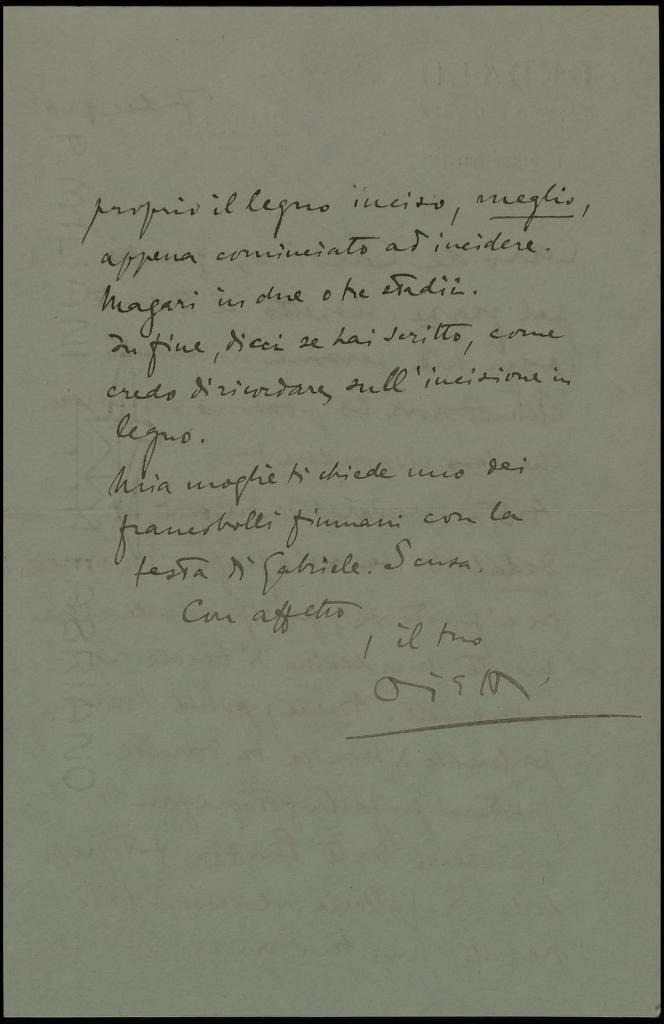 proprio il legno inciso, meglio,
appena cominciato ad incidere.
Magari in due o tre stadii.
In fine, dicci se hai scritto, come
credo di ricordare, sull'incisione in
legno.
Mia moglie ti chiede uno dei
francobolli fiumani con la
testa di Gabriele. Scusa.
Con affetto
, il tuo
Ojetti